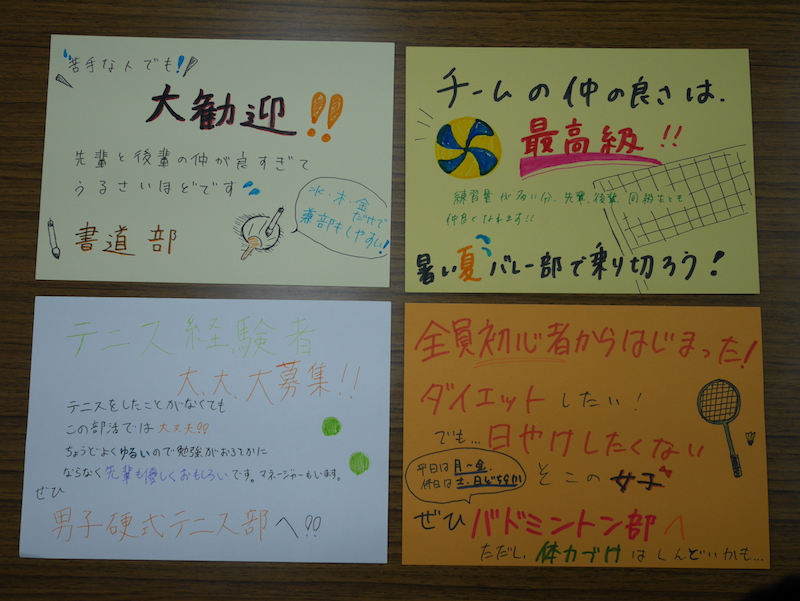 苦手な人でも!
大勧迎!!
先輩と後輩の仲が良すぎて
うるさいほどです
水・木・金
だけで
兼部もしやすい!
書道部
チームの仲の良さは、
最高級!!
練習量が多い分、先輩、後輩、同級生とも
仲良くなれます!!
暑い夏バレー部で乗り切ろう!
テニス経験者
大、大、大募集!!
テニスをしたことがなくても
この部活では大丈夫!!
ちょうどよくゆるいので勉強がおろそかに
ならなく先輩も優しくおもしろいです。マネージャーもいます。
ぜひ
男子硬式テニス部へ!!
全員初心者からはじまった!
ダイエットしたい!
でも…日やけしたくない
平日は月~金、
休日は土・日どちらか
そこの女子
ぜひバドミントン部へ
ただし、体力づけはしんどいかも…